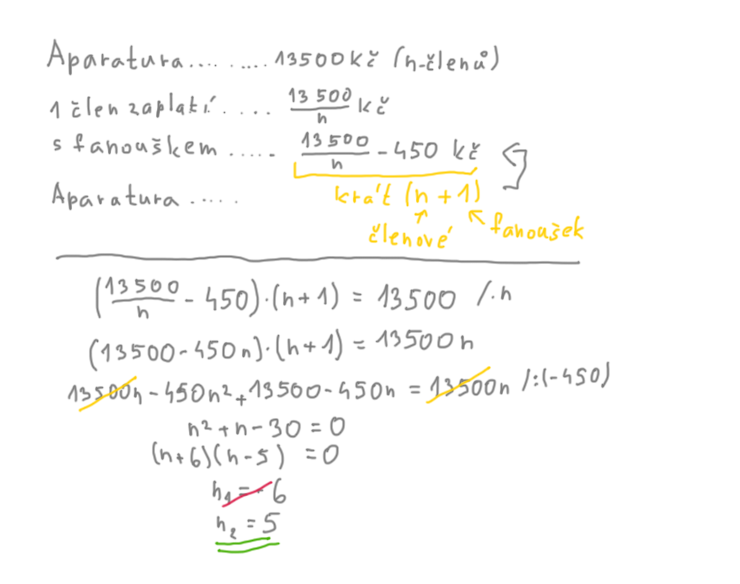 Aparatura......... 13500 Kč (n-členů)
1 člen zaplatí..... 13 500/n Kč
s fanouškem..... 13 500/n - 450 Kč
Aparatura ..... krát (n + 1)
členové fanoušek
(13 500/n - 450)·(n+1) = 13500 /·n
(13500-450n)·(n+1) = 13500n
13500n - 450n² + 13500 - 450n = 13500n /:(-450)
n² + n - 30 = 0
(n+6)(n-5) = 0
n₁ = -6
n₂ = 5